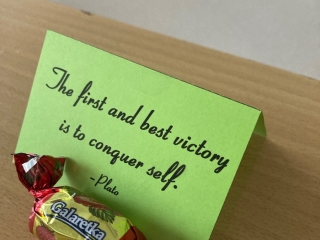 The first and best victory
is to conquer self.
-Plato
Galaretka